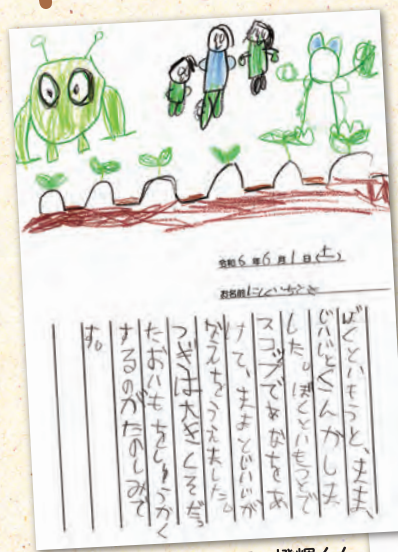 令和6年6月1日(土)
お名前
ぼくといもうと、まま、
じいじとくんかしま
した。ぼくといもうとで
スコップであなをあ
けて、ままとじいじが
なえをうえました。
つぎは大きくそだっ
たおいもをしゅうかく
するのがたのしみで
す。